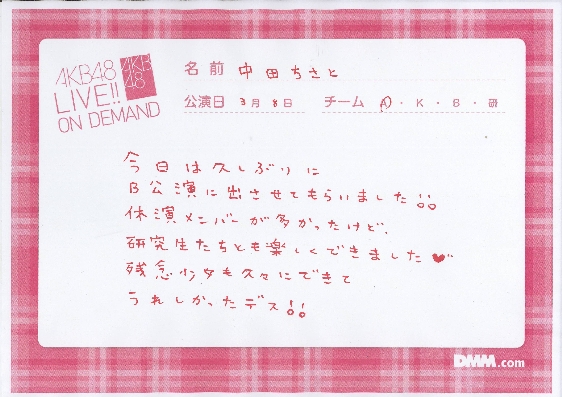 AKB48
LIVE!!
ON DEMAND
AKB
48
名前 中田ちさと
公演日 3月8日 チーム A・K・B・研
今日は久しぶりに
B公演に出させてもらいました!!
休演メンバーが多かったけど、
研究生たちとも楽しくできました♥
残念少女も久々にできて
うれしかったデス!!
DMM.com